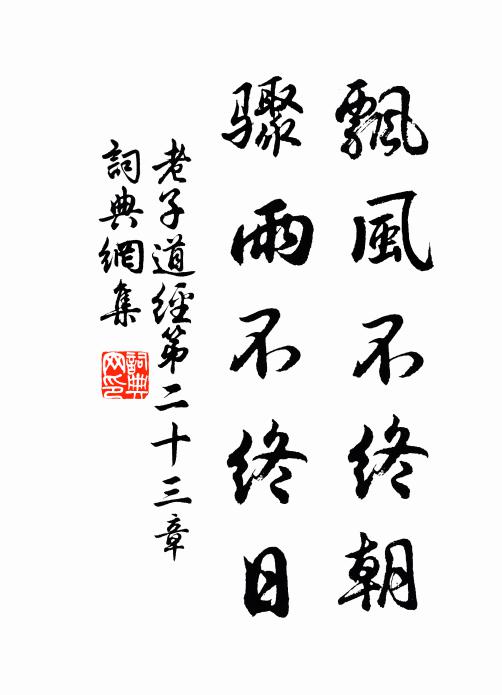 飄風不終朝
驟雨不終日
老子道經第二十三章
詞典網集
詞典網印